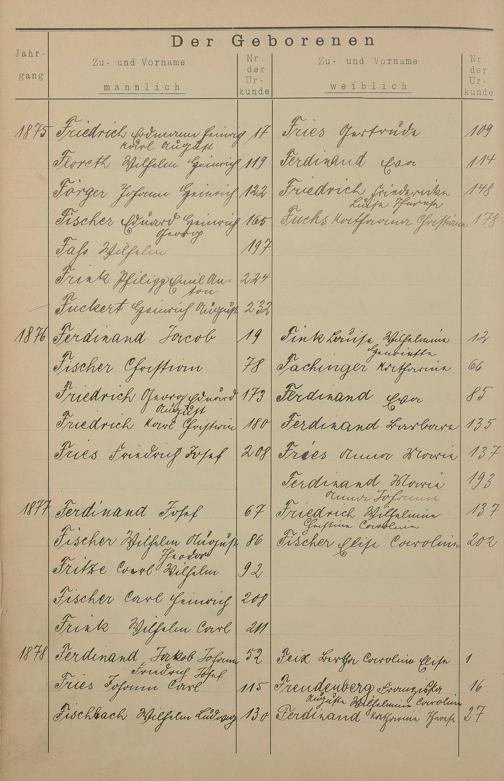 Der Geborenen
Jahr-
gang
Zu- und Vorname
männlich
Nr.
der
Ur-
kunde
Zu- und Vorname
weiblich
Nr.
der
Ur-
kunde
1875 Friedrich Edmann Heinrig 17 Fries Gertrude 109
Karl August
Floreth Wilhelm Heinrich 119 Ferdinand Eva 114
Förger Johann Heinrich 122 Friedrich Friederike 148
Luise Therese
Fischer Eduard Heinrich 165 Fuchs Katharina Christiane 178
Georg
Fass Wilhelm 197
Frink Philipp Emil An- 224
ton
Fuckert Heinrich August 232
1876 Ferdinand Jacob 19 Fink Louise Wilhelmine 12
Henriette
Fischer Christian 78 Fachinger Katharina 66
Friedrich Georg Eduard 173 Ferdinand Eva 85
August
Friedrich Karl Christian 180 Ferdinand Barbara 135
Fries Friedrich Josef 208 Fries Anna Maria 137
Ferdinand Maria 193
Anna Johanna
1877 Ferdinand Josef 67 Friedrich Wilhelmine 137
Christine Caroline
Fischer Wilhelm August 86 Fischer Elise Caroline 202
Theodor
Fritze Carl Wilhelm 92
Fischer Carl Heinrich 208
Frink Wilhelm Carl 211
1878 Ferdinand Jakob Johann 52 Feix Bertha Caroline Elise 1
Friedrich Josef
Fries Johann Carl 115 Freudenberg Franziska 16
Auguste Wilhelmine Caroline
Fischbach Wilhelm Ludwig 130 Ferdinand Katharina Therese 27